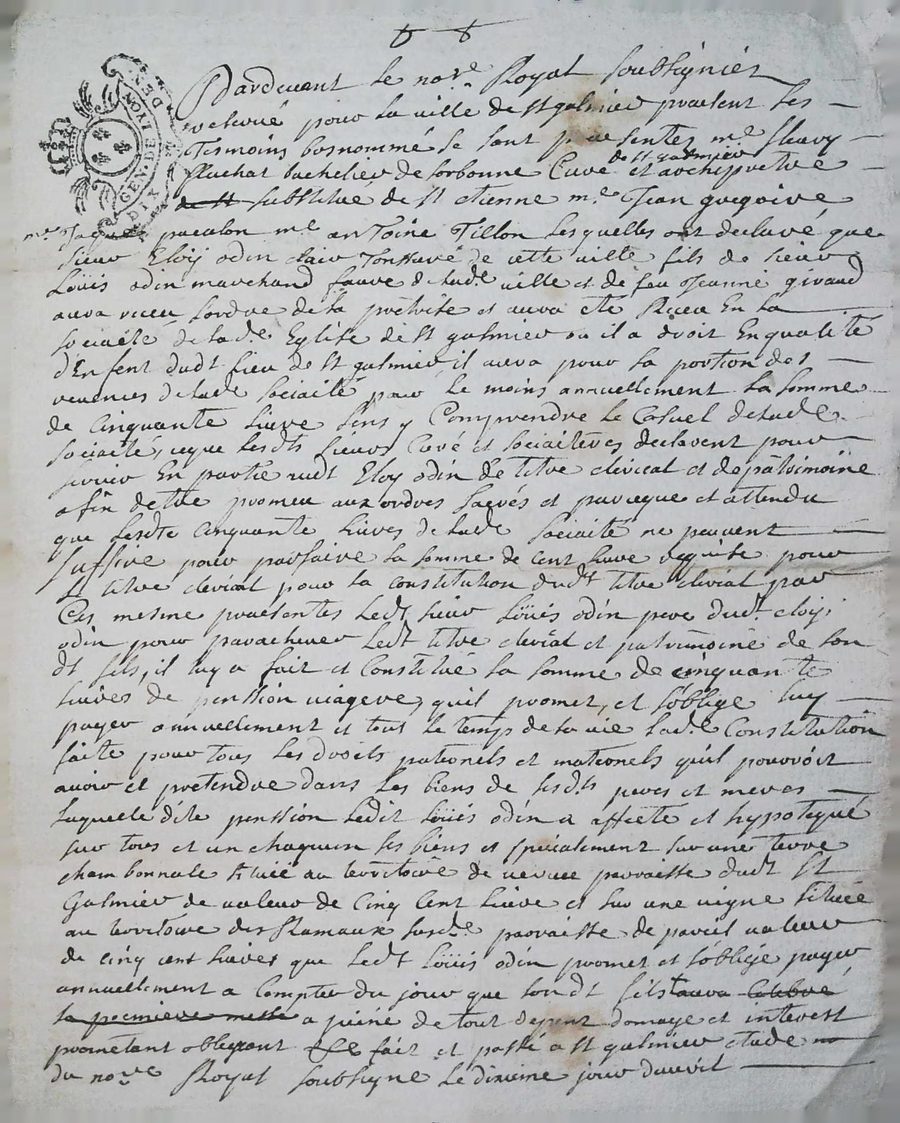 GEN. DE LYON
DIX DEN.
Pardevant le nore Royal soubsignier
reservé pour la ville de st galmier presant les
tesmoins basnommé se sont presentez me fleury
fluchat bachelier de sorbonne Curé de st galmier et archiprettre
de st substitué de st etienne me Jean gregoire
me Jaques paculon me antoine Tillon Lesquelles ont declaré que
sieur Eloÿ odin clair tonsuré de cette ville fils de sieur
Loüis odin marchand de lade ville et de feu Jeanne giraud
aura receu Lordre de la pretrise et aura eté Receu En la
sociaité de lade Eglise de st galmier ou il a droit En qualité
d'Enfent dudt lieu de st galmier il aura pour sa portion des
revenues de lade sociaité par le moins annuellement la somme
de Cinquante livre sens y Comprendre le Casuel de lade
sociaité, ceque lesdts sieurs Curé et sociaiteres declarent pour
servir En partie audt Eloy odin de titre clerical et de patrimoine
afin detre promeu aux ordres sacrés et parceque et attendu
que lesdte Cinquante livres de lade sociaité ne peuvent
suffire pour parfaire la somme de cent livre requise pour
le titre clerical pour la constitution dudt titre clerical par
Ces mesme presantes Ledt sieur Loüis odin pere dudt eloy
odin pour parachever Ledt titre clerical et patrimoine de son
dt fils, il luy a fait et Constitué la somme de cinquante
livres de penssion viagere, quil promet, et s'oblige luy
payer annuellement et tout le temps de sa vie lade Constitution
faite pour tous les droits paternels et maternels qu'il pouvoit
avoir et pretendre dans les biens de sesdts peres et meres
Laquelle dite penssion Ledit Loüis odin a affecté et hypotequé
sur tous et un chaquun ses biens et specialement sur une terre
chambonnale situeé au territoire de parroisse dudt St
Galmier de valeur de Cinq Cent livre et sur une vigne située
au territoire des flamaux susde parroisse de pareil valeur
de cinq cent livres que Ledt Loüis odin promet et s'oblige payer
annuellement a Compter du jour que sondt fils aura Celebré
sa premiere messe a peine de tout depent domage et interest
prometant obligeant &e fait et passé a st galmier etude
du nore Royal soubsigne Le dixieme jour d'avril